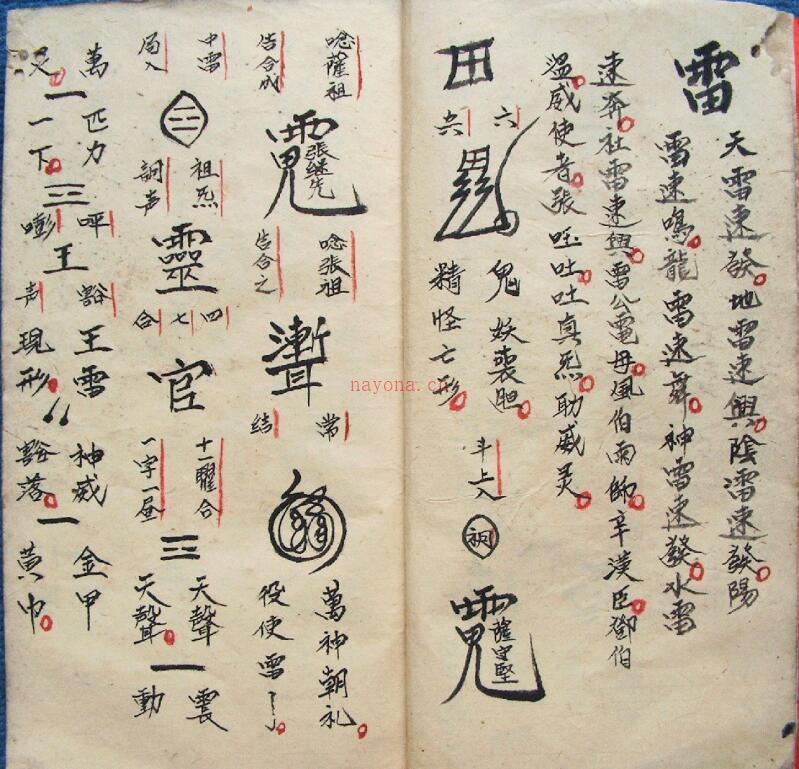 雷
天雷速發地雷速興陰雷速發陽
雷速鳴龍雷速舞神雷速發水雷
速奔社雷速興雷公電母風伯雨師辛漢臣鄧伯
温威使者張
吐吐真炁助威灵
六
鬼妖丧胆
精怪亡形
斗上入
薩守堅
唸薩祖
告合成
張继先
唸張祖
告合之
常
结
萬神朝礼
役使雷
中雷
局入
祖炁
詞声
靈
四
七
合
官
十一曜合
一字一昼
三
天聲
天聲
一
震
動
萬匹力
一
一下
三
呯
嘭
王
豁
声
王雷
現形
神威
豁落
一
金甲
黄巾
nayona.cn